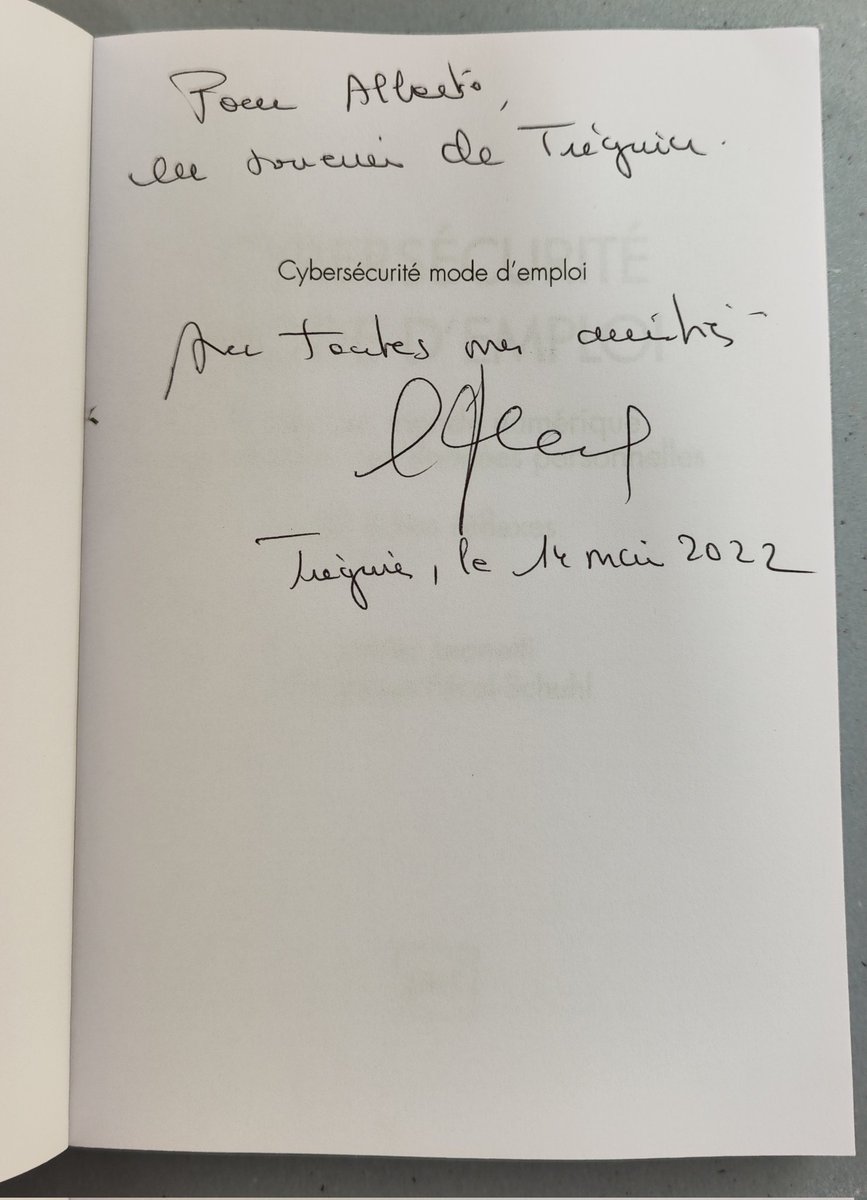 Pour Alberto,
en souvenir de Tréguier.
Cybersécurité mode d'emploi
Avec toutes mes amitiés
Tréguier, le 14 mai 2022